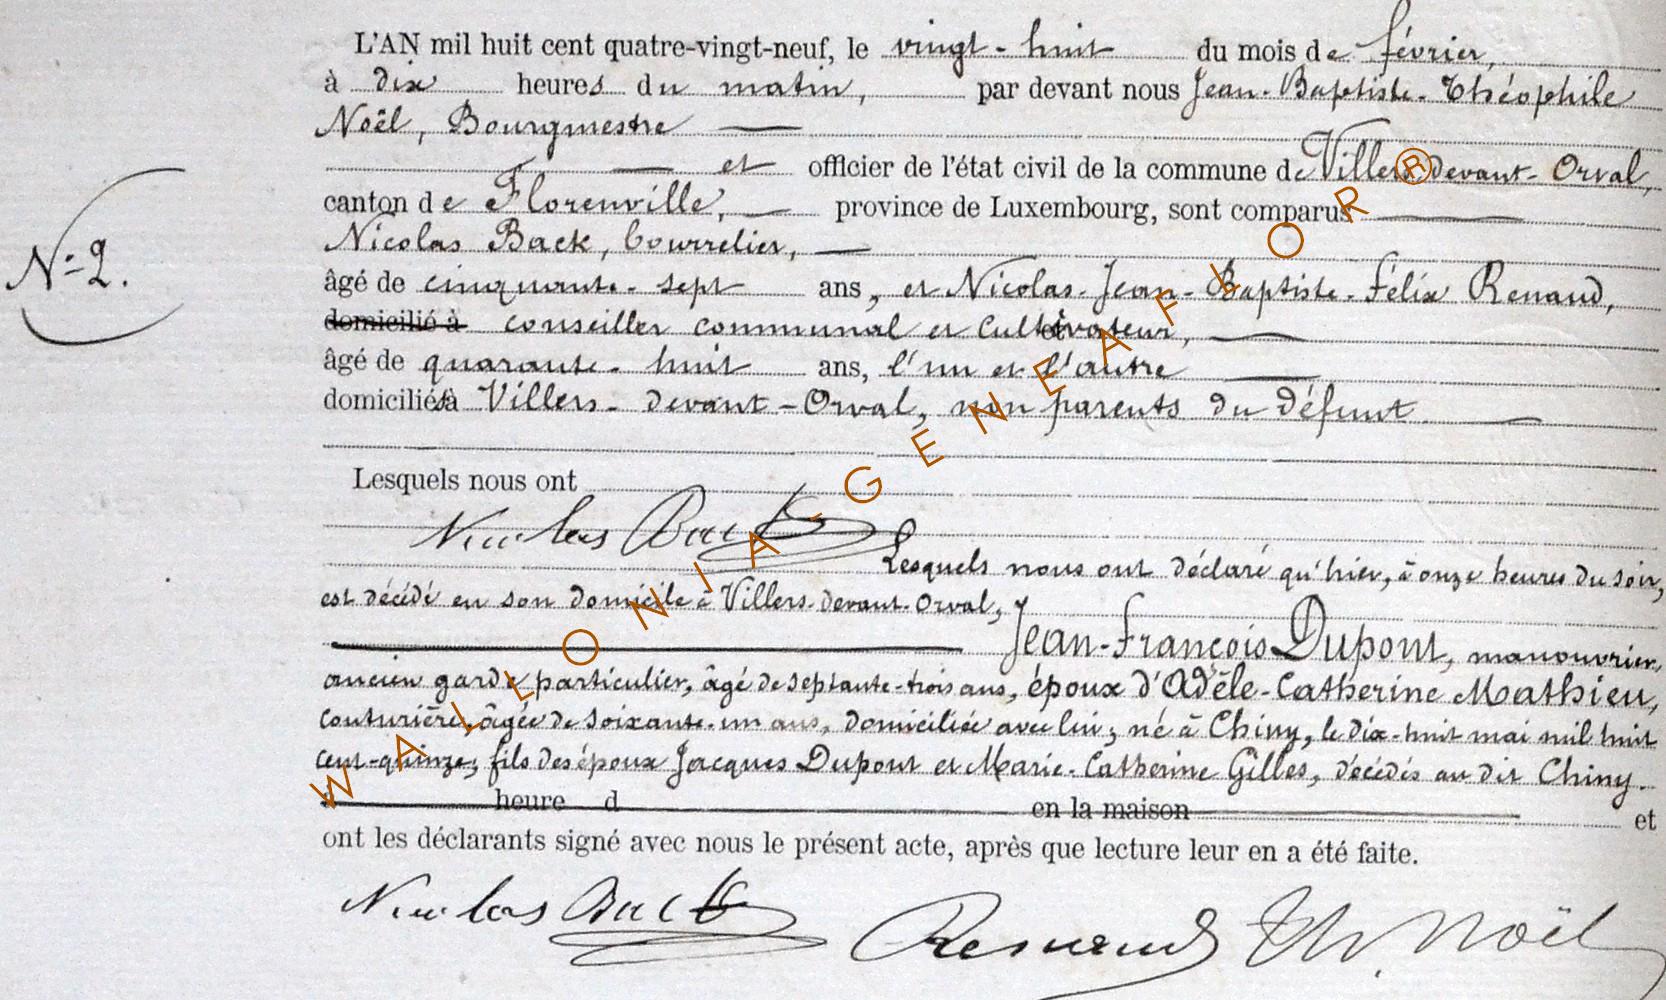 L'AN mil huit cent quatre-vingt-neuf, le vingt-huit du mois de février,
à dix heures du matin, par devant nous Jean-Baptiste-Théophile
Noël, Bourgmestre
et officier de l'état civil de la commune de Villers-devant-Orval,
canton de Florenville, province de Luxembourg, sont comparus
Nicolas Back, bourrelier,
N° 2.
âgé de cinquante-sept ans, et Nicolas-Jean-Baptiste-Félix Renaud,
domicilié à conseiller communal et cultivateur, et
âgé de quarante-huit ans, l'un et l'autre
domiciliés à Villers-devant-Orval, non parents du défunt
Lesquels nous ont
Nicolas Back
Lesquels nous ont déclaré qu'hier, à onze heures du soir,
est décédé en son domicile à Villers-devant-Orval,
Jean-François Dupont, manouvrier,
ancien garde particulier, âgé de septante-trois ans, époux d'Adèle-Catherine Mathieu,
couturière, âgée de soixante-un ans, domiciliée avec lui; né à Chiny, le dix-huit mai mil huit
cent-quinze; fils des époux Jacques Dupont et Marie-Catherine Gilles, décédés au dit Chiny.
heure d en la maison et
ont les déclarants signé avec nous le présent acte, après que lecture leur en a été faite.
Nicolas Back Renaud Th. Noël
WALLONIA-GENEAFLOR®